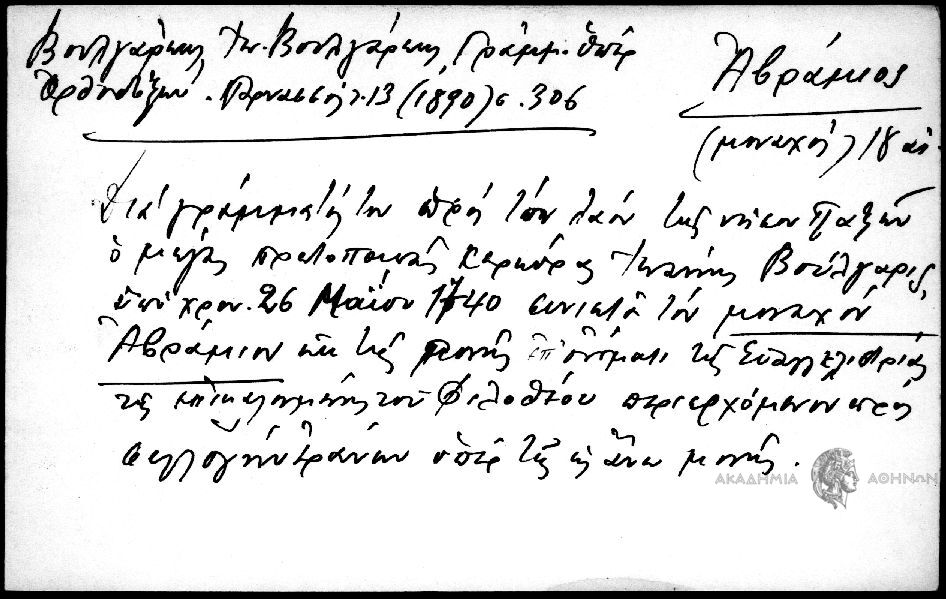 Βουλγάρεως, Ἰω. Βουλγάρεως Γράμμ. ὑπὲρ
Ὀρθοδόξων. Παρνασσός τ. 13 (1890) σ. 306
Ἀβράμιος
(μοναχός) 18 αἰ.
Διά γράμματός του πρός τόν λαόν τῆς νήσου Παξῶν
ὁ μέγας πρωτοπαπᾶς Κερκύρας Ἰωάννης Βούλγαρις,
ὑπό χρον. 26 Μαΐου 1740 συνιστᾶ τόν μοναχόν
Ἀβράμιον ἐκ τῆς μονῆς ἐπ' ὀνόματι τῆς Εὐαγγελιστρίας
τῆς ἐπικαλουμένης τοῦ Φιλοθέου περιερχόμενον πρός
συλλογήν ἐράνων ὑπέρ τῆς ὡς ἄνω μονῆς.
ΑΚΑΔΗΜΙΑ ΑΘΗΝΩΝ